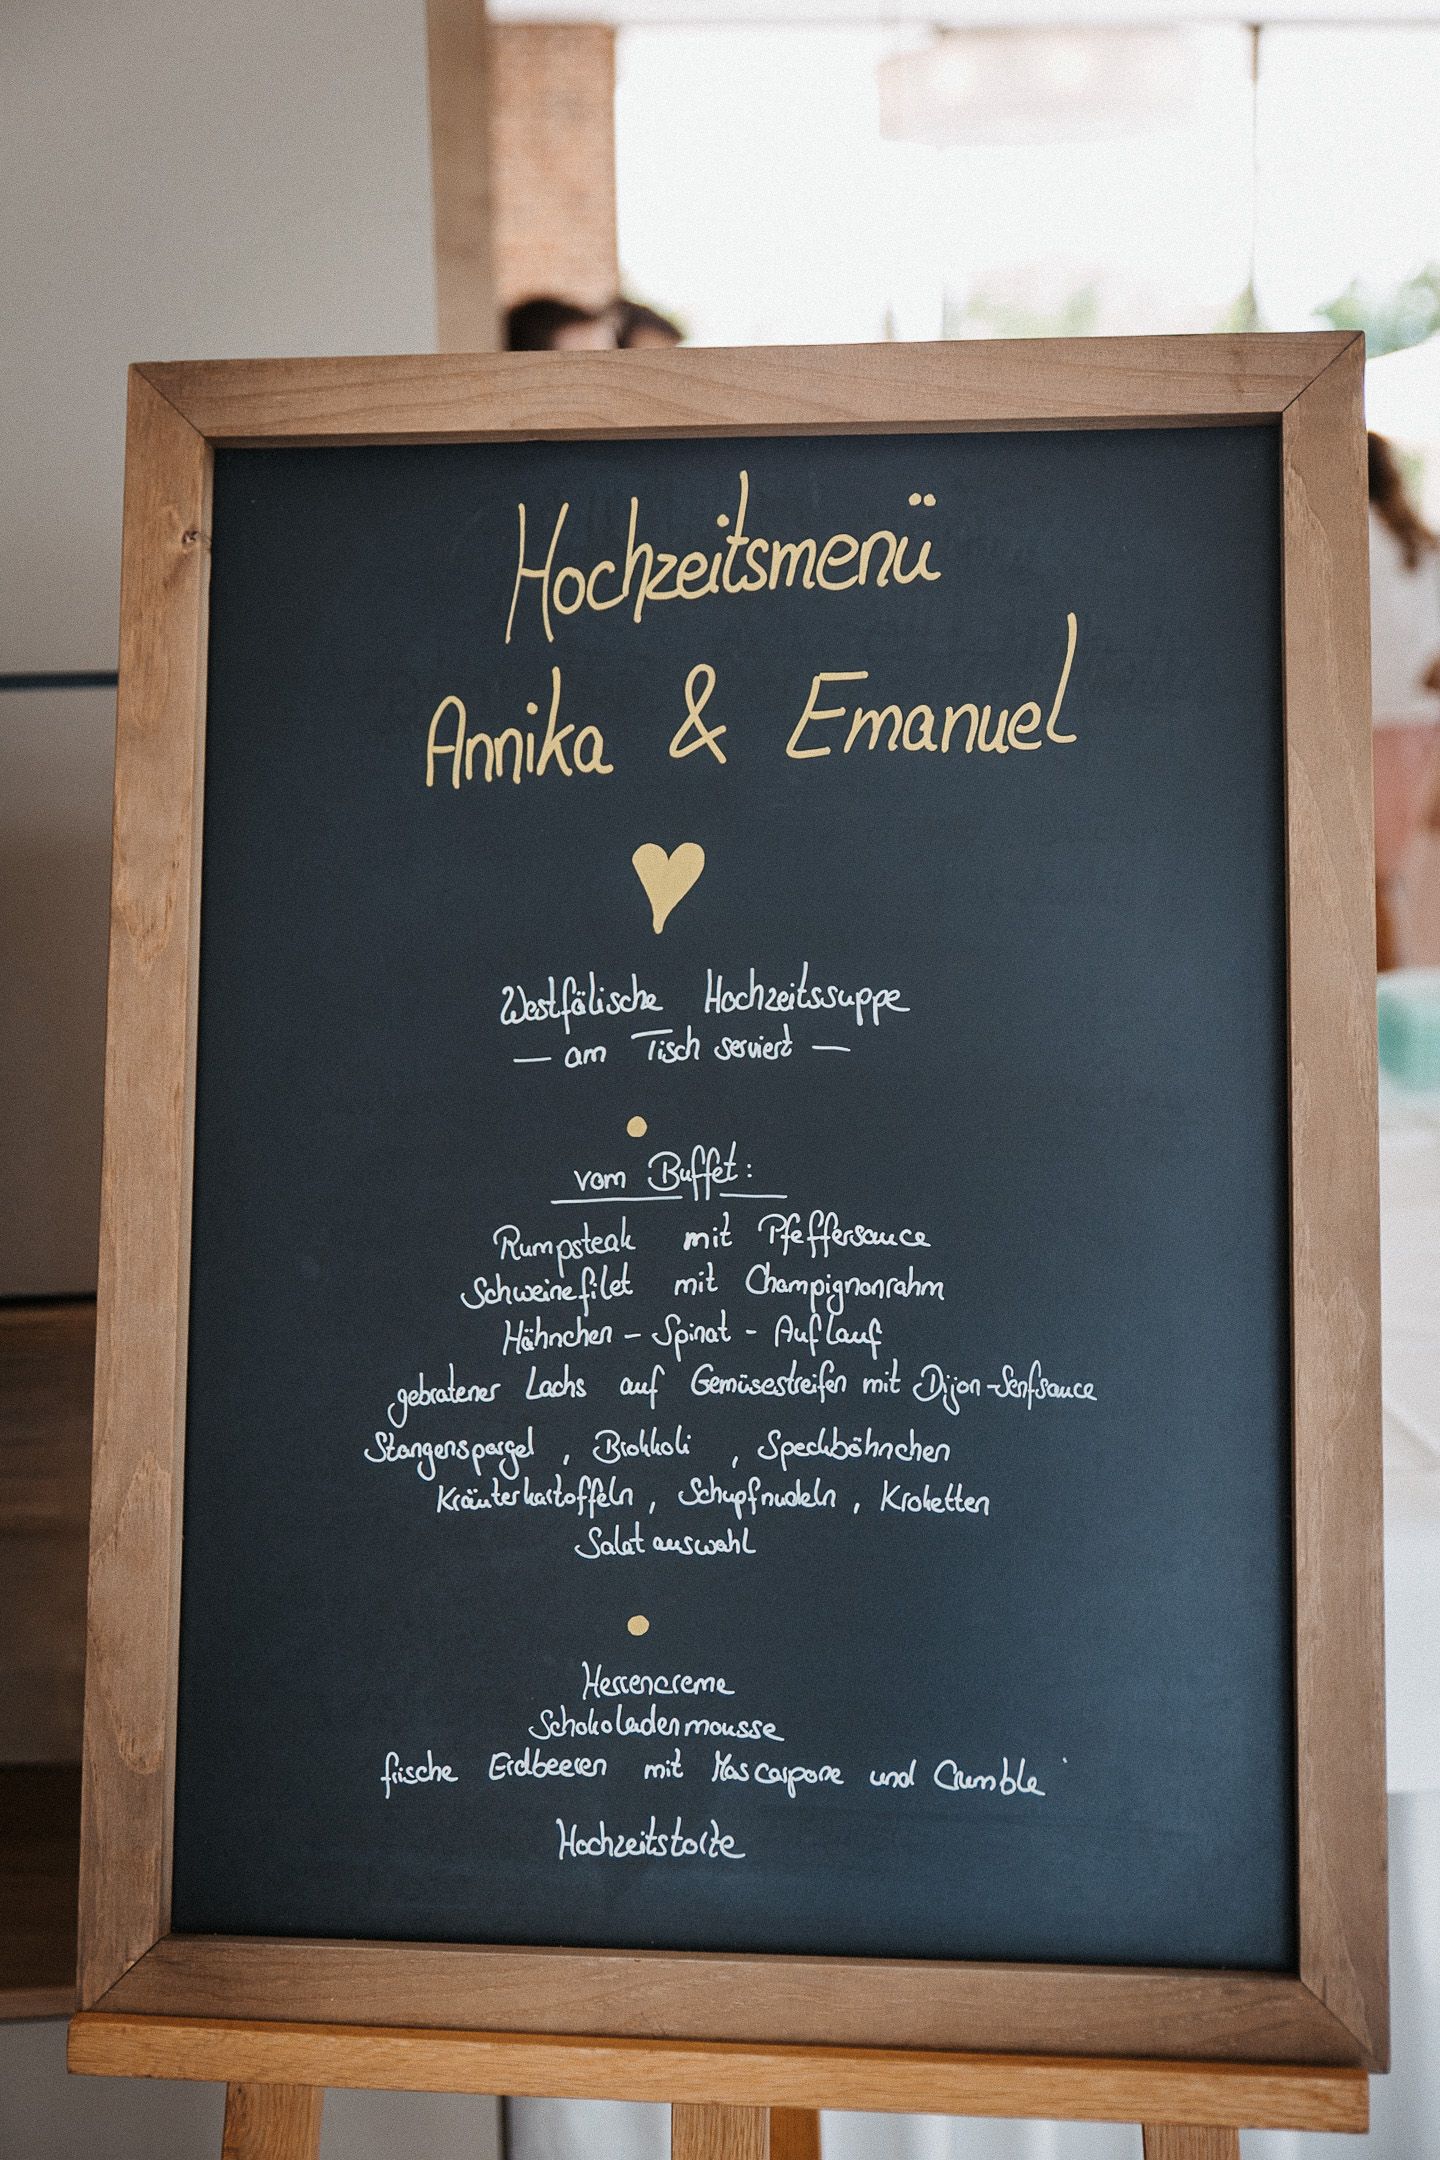 Hochzeitsmenü
Annika & Emanuel
Westfälische Hochzeitssuppe
— am Tisch serviert —
vom Buffet:
Rumpsteak mit Pfeffersauce
Schweinefilet mit Champignonrahm
Hähnchen - Spinat - Auflauf
gebratener Lachs auf Gemüsestreifen mit Dijon-Senfsauce
Stangenspargel , Brokkoli , Speckböhnchen
Kräuterkartoffeln , Schupfnudeln , Kroketten
Salatauswahl
Herrencreme
Schokoladenmousse
frische Erdbeeren mit Mascarpone und Crumble
Hochzeitstorte